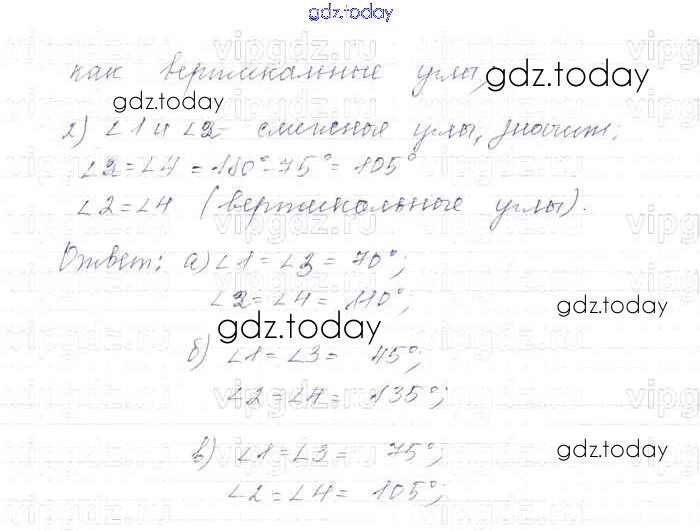 gdz.today
как вертикальные углы;
gdz.today
gdz.today
2) ∠1 и ∠2 - смежные углы, значит;
∠2 = ∠4 = 180° - 75° = 105°
∠2 = ∠4 (вертикальные углы).
Ответ: а) ∠1 = ∠3 = 70°;
∠2 = ∠4 = 110°;
gdz.today
gdz.today
б) ∠1 = ∠3 = 45°;
∠2 = ∠4 = 135°;
в) ∠1 = ∠3 = 75°;
gdz.today
∠2 = ∠4 = 105°;